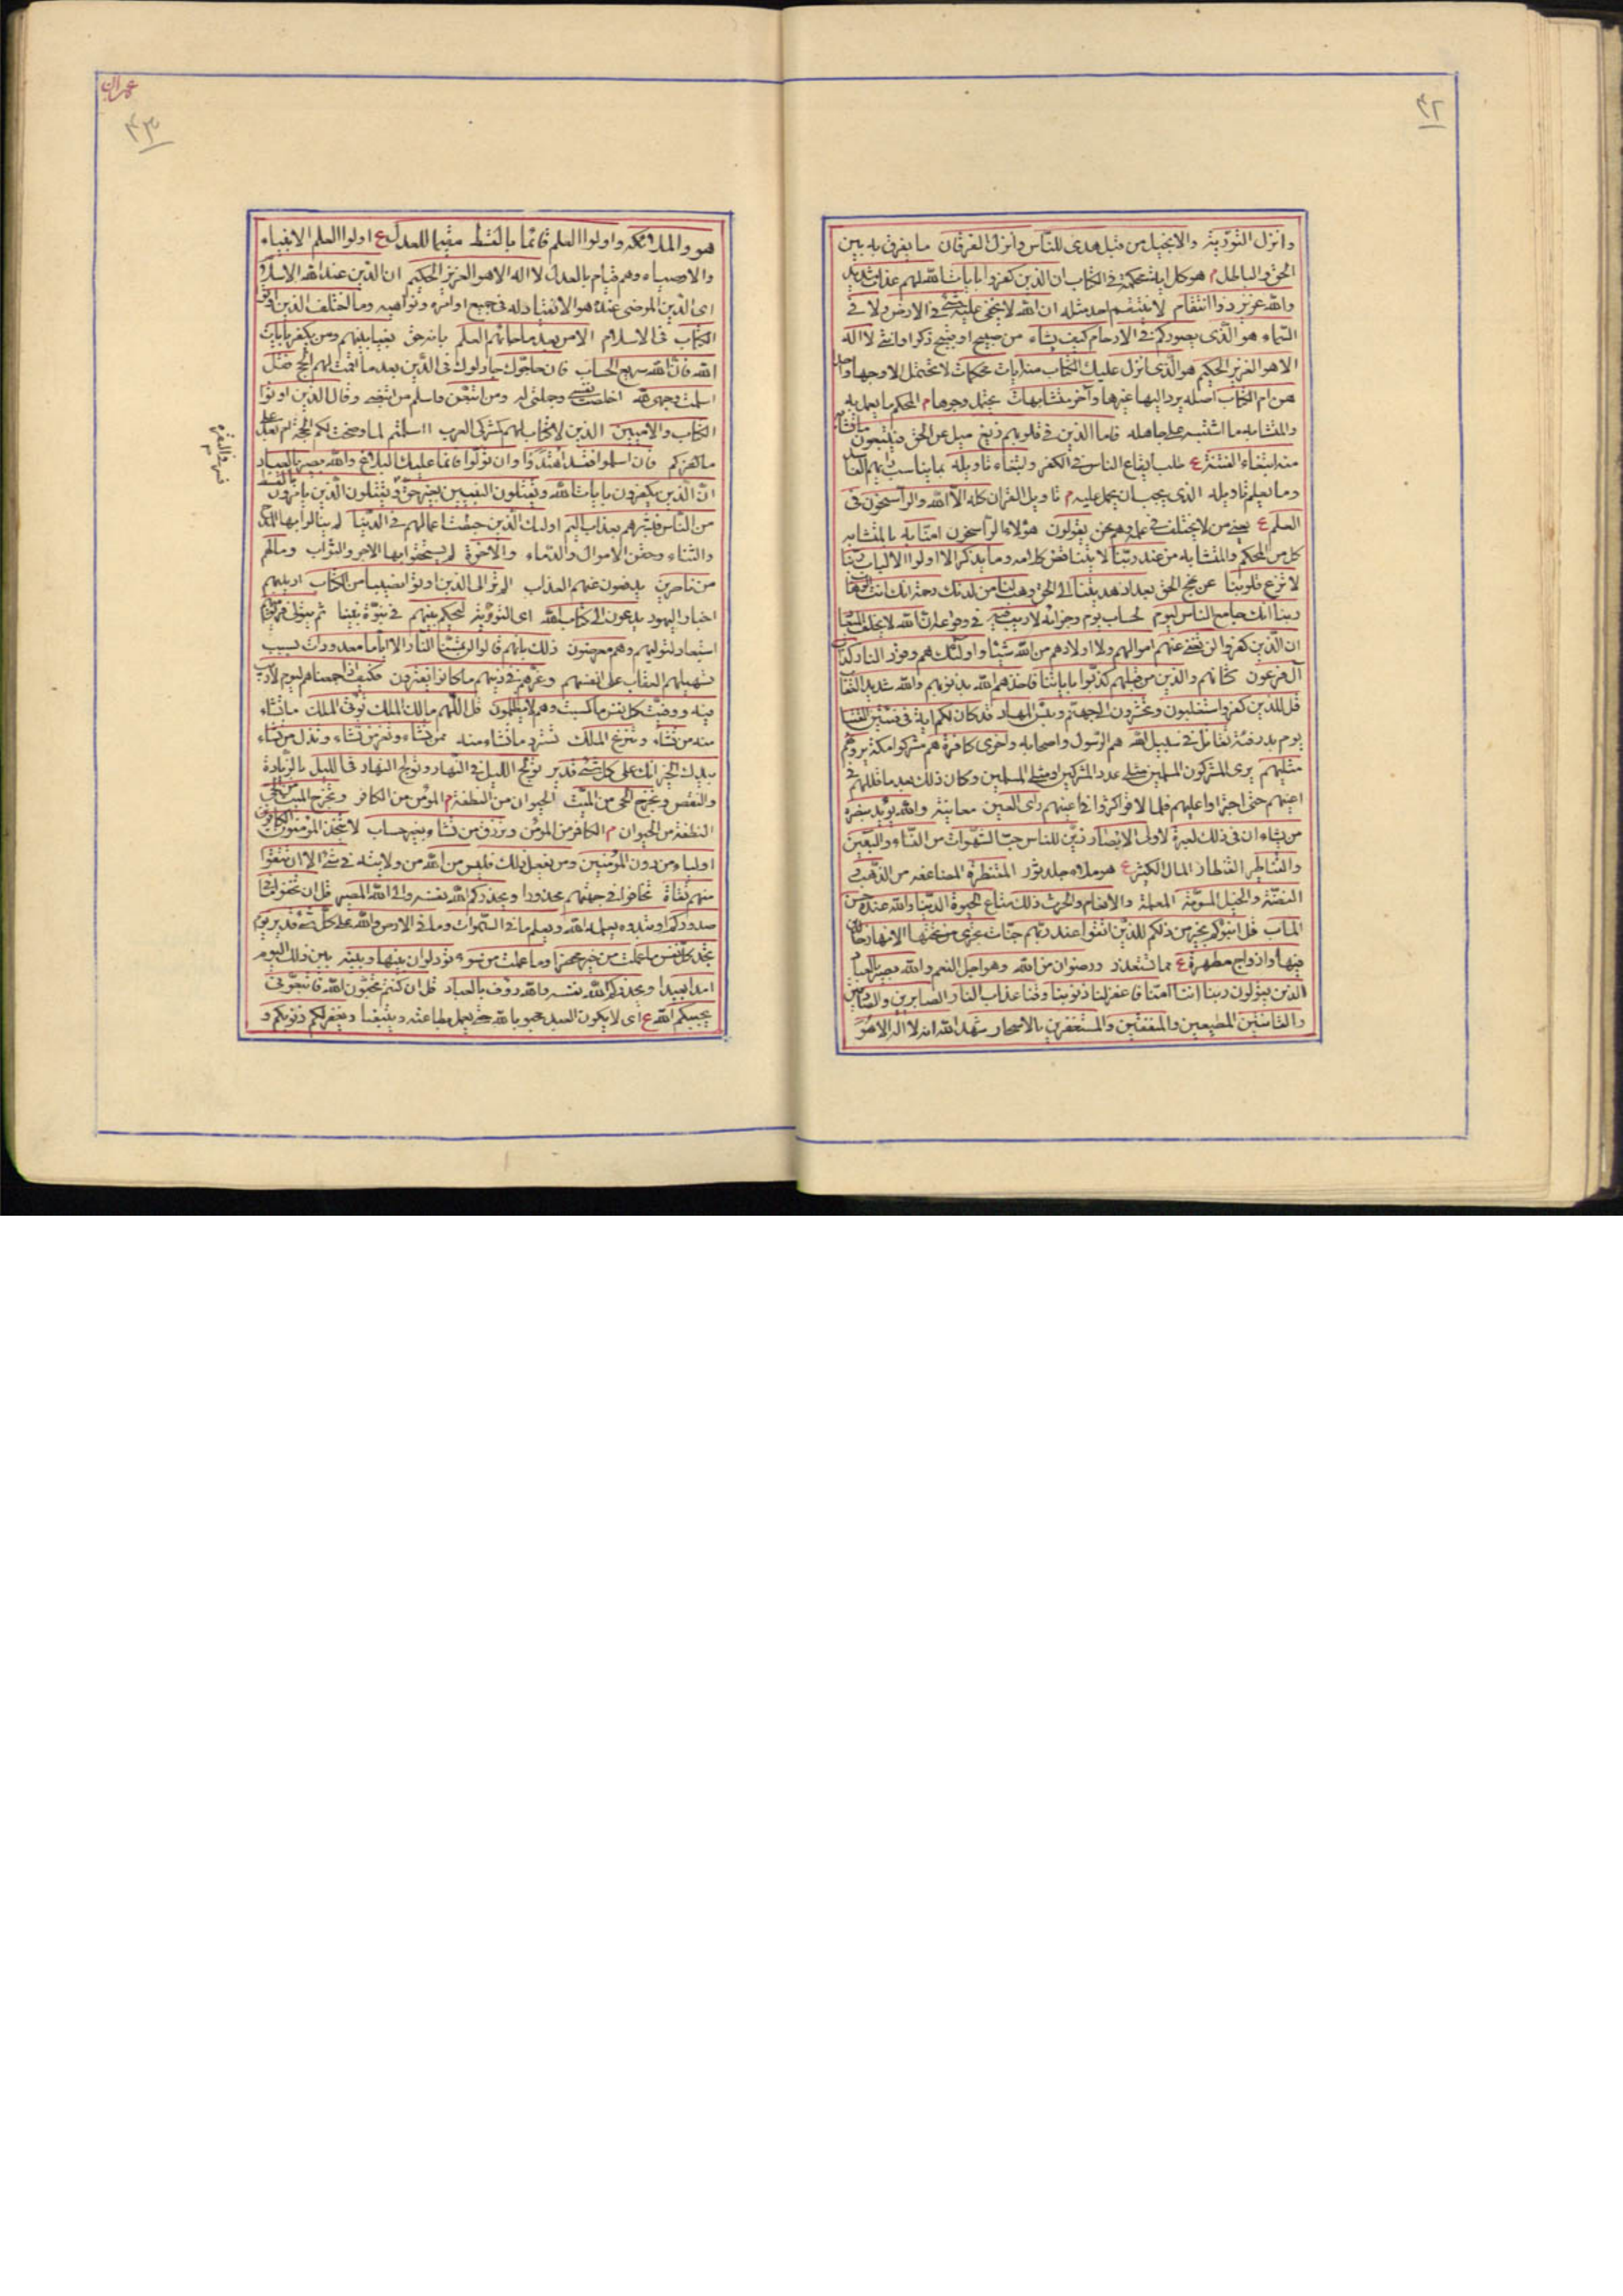 ٤٢
وانزل التورية والانجيل من قبل هدى للناس وانزل الفرقان ما يفرق به بين
الحق والباطل م هو كل اية محكمة في الكتاب ان الذين كفروا بايات الله لهم عذاب شديد
والله عزيز ذو انتقام لا ينتقم احد مثله ان الله لا يخفى عليه شئ في الارض ولا في
السماء هو الذى يصوركم في الارحام كيف يشاء من صبيح او قبيح ذكرا وانثى لا اله
الا هو العزيز الحكيم هو الذى انزل عليك الكتاب منه ايات محكمات لا تحتمل الا وجها واحدا
هن ام الكتاب اصله يرد اليها غيرها واخر متشابهات تحتمل وجوها م المحكم ما يعمل به
والمتشابه ما اشتبه على جاهله فاما الذين في قلوبهم زيغ ميل عن الحق فيتبعون ما تشابه
منه ابتغاء الفتنة ع طلب ايقاع الناس في الكفر وابتغاء تاويله بما يناسب رايهم الفاسد
وما يعلم تاويله الذى يجب ان يحمل عليه م تاويل القران كله الا الله والراسخون في
العلم ع يعنى من لا يختلف في علمه وهم نحن يقولون هؤلاء الراسخون امنا به بالمتشابه
كل من المحكم والمتشابه من عند ربنا لا يتناقض كلامه وما يذكر الا اولوا الالباب ربنا
لا تزغ قلوبنا عن نهج الحق بعد اذ هديتنا الى الحق وهب لنا من لدنك رحمة انك انت الوهاب
ربنا انك جامع الناس ليوم لحساب يوم وجزائه لا ريب فيه في وقوعه ان الله لا يخلف الميعاد
ان الذين كفروا لن تغنى عنهم اموالهم ولا اولادهم من الله شيئا واولئك هم وقود النار كداب
آل فرعون كشانهم والذين من قبلهم كذبوا باياتنا فاخذهم الله بذنوبهم والله شديد العقاب
قل للذين كفروا ستغلبون وتحشرون الى جهنم وبئس المهاد قد كان لكم اية في فئتين التقتا
يوم بدر فئة تقاتل في سبيل الله هم الرسول واصحابه واخرى كافرة هم مشركوا مكة يرونهم
مثليهم يرى المشركون المسلمين مثلى عدد المشركين او مثلى المسلمين وكان ذلك بعد ما قللهم في
اعينهم حتى اجترؤا عليهم فلما لاقوا كثروا في اعينهم راى العين معاينة والله يؤيد بنصره
من يشاء ان في ذلك لعبرة لاولى الابصار زين للناس حب الشهوات من النساء والبنين
والقناطير القنطار المال الكثير ع هو ملاء جلد ثور المقنطرة المضاعفه من الذهب و
الفضة والخيل المسومة المعلمة والانعام والحرث ذلك متاع الحيوة الدنيا والله عنده حسن
الماب قل اؤنبئكم بخير من ذلكم للذين اتقوا عند ربهم جنات تجرى من تحتها الانهار خالدين
فيها وازواج مطهرة ع مما تستقذر ورضوان من الله وهو اجل النعم والله بصير بالعباد
الذين يقولون ربنا اننا امنا فاغفر لنا ذنوبنا وقنا عذاب النار الصابرين والصادقين
والقانتين المطيعين والمنفقين والمستغفرين بالاسحار شهد الله انه لا اله الا هو
عمران
٤٣
هو والملائكه واولوا العلم قائما بالقسط مقيما للعدل ع اولوا العلم الانبياء
والاوصياء وهم قيام بالعدل لا اله الا هو العزيز الحكيم ان الدين عند الله الاسلام
اى الدين المرضى عنده هو الانقياد له في جميع اوامره ونواهيه وما اختلف الذين اوتوا
الكتاب في الاسلام الا من بعد ما جائهم العلم بانه حق بغيا بينهم ومن يكفر بايات
الله فان الله سريع الحساب فان حاجوك جادلوك في الدين بعد ما اقمت لهم الحجج فقل
اسلمت وجهى لله اخلصت نفسى وجملتى له ومن اتبعن واسلم من اتبعنى وقل للذين اوتوا
الكتاب والاميين الذين لا كتاب لهم كمشركى العرب ءاسلمتم لما وضحت لكم الحجة ام بعد على
ما كفركم فان اسلموا فقد اهتدوا وان تولوا فانما عليك البلاغ والله بصير بالعباد
ان الذين يكفرون بايات الله ويقتلون النبيين بغير حق ويقتلون الذين يامرون بالقسط
من الناس فبشرهم بعذاب اليم اولئك الذين حبطت اعمالهم في الدنيا لم ينالوا بها المدح
والثناء وحقن الاموال والدماء والاخرة لم يستحقوا بها الاجر والثواب وما لهم
من ناصرين يدفعون عنهم العذاب الم تر الى الذين اوتوا نصيبا من الكتاب اريد بهم
احبار اليهود يدعون الى كتاب الله اى التورية ليحكم بينهم في نبوة نبينا ثم يتولى فريق منهم
استبعاد لتوليهم وهم معرضون ذلك بانهم قالوا لن تمسنا النار الا اياما معدودات بسبب
تسهيلهم العقاب على انفسهم وغرهم في دينهم ما كانوا يفترون فكيف اذا جمعناهم ليوم لا ريب
فيه ووفيت كل نفس ما كسبت وهم لا يظلمون قل اللهم مالك الملك تؤتى الملك ما تشاء
منه من تشاء وتنزع الملك تسترد ما تشاء منه ممن تشاء وتعز من تشاء وتذل من تشاء
بيدك الخير انك على كل شئ قدير تولج الليل في النهار وتولج النهار في الليل بالزيادة
والنقص وتخرج الحى من الميت الحيوان من النطفة م المؤمن من الكافر وتخرج الميت من الحى
النطفة من الحيوان م الكافر من المؤمن وترزق من تشاء بغير حساب لا يتخذ المؤمنون الكافرين
اولياء من دون المؤمنين ومن يفعل ذلك فليس من الله من ولايته في شئ الا ان تتقوا
منهم تقاة تخافوا من جهتهم محذورا ويحذركم الله نفسه والى الله المصير قل ان تخفوا ما في
صدوركم او تبدوه يعلمه الله ويعلم ما في السموات وما في الارض والله على كل شئ قدير يوم
تجد كل نفس ما عملت من خير محضرا وما عملت من سوء تود لو ان بينها وبينه بين ذلك اليوم
امدا بعيدا ويحذركم الله نفسه والله رؤف بالعباد قل ان كنتم تحبون الله فاتبعونى
يحببكم الله ع اى لا يكون العبد محبوبا لله حتى يعمل بطاعته ويتبعنا ويغفر لكم ذنوبكم و